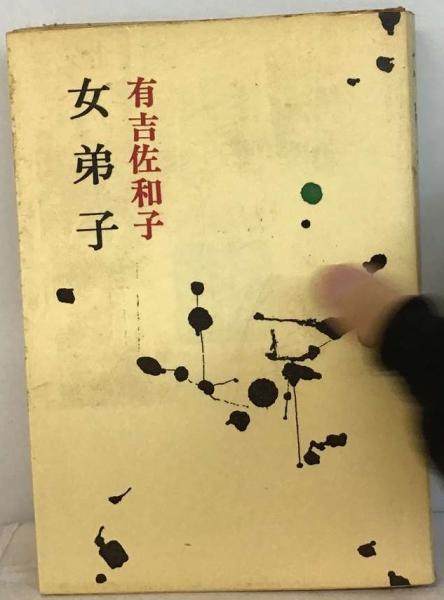 有吉佐和子
女弟子